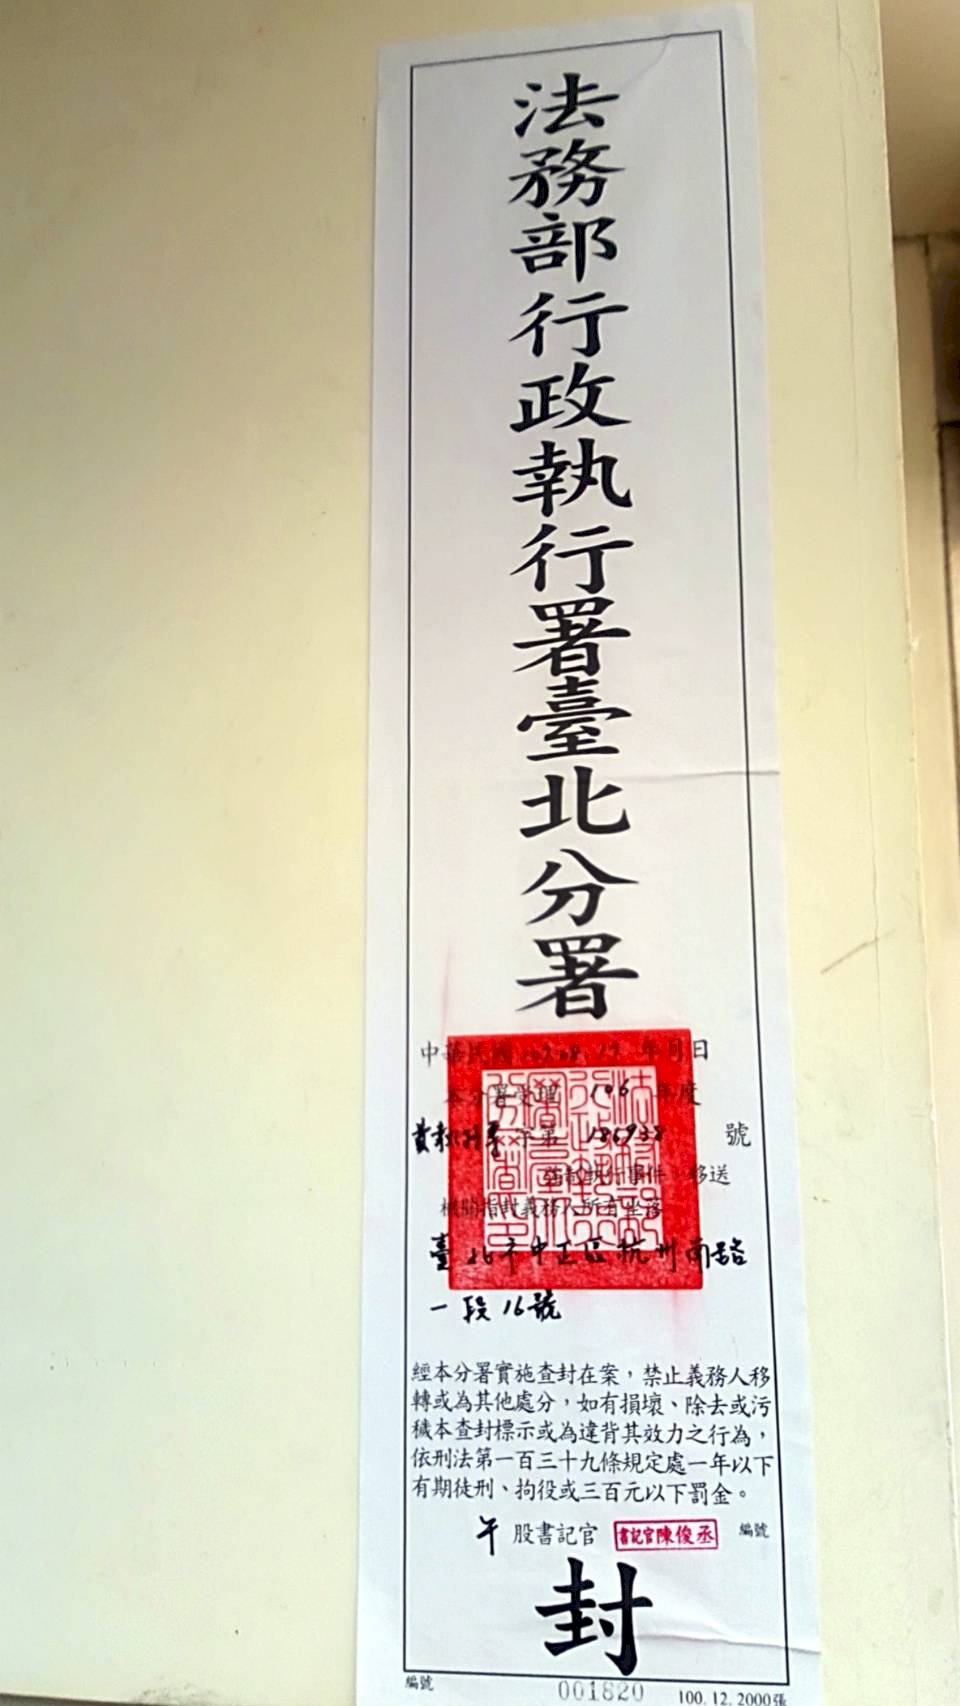 法務部行政執行署臺北分署
中華民國 年月日
本分署受理 106 年度
字第 186938 號
強制執行事件,移送
機關指封義務人所有坐落
臺北市中正區杭州南路
一段16號
經本分署實施查封在案,禁止義務人移
轉或為其他處分,如有損壞、除去或污
穢本查封標示或為違背其效力之行為,
依刑法第一百三十九條規定處一年以下
有期徒刑、拘役或三百元以下罰金。
午 股書記官 書記官陳俊丞 編號
封
編號 001820 100.12.2000張